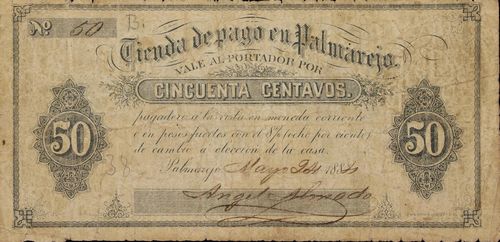 Nº 50
B.
Tienda de pago en Palmarejo.
VALE AL PORTADOR POR
CINCUENTA CENTAVOS.
50
pagadero a la vista en moneda corriente
o en pesos fuertes con el 8% (ocho por ciento)
de cambio a eleccion de la casa.
50
38
Palmarejo Mayo 24 188
Angel